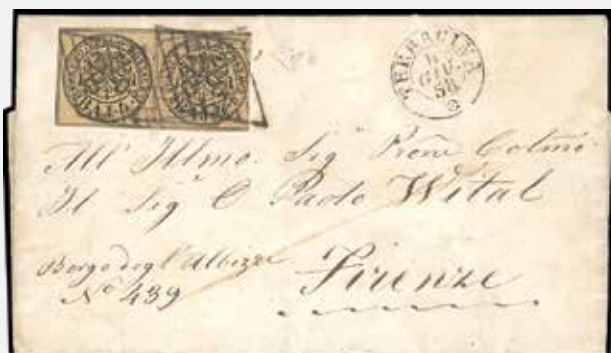 BAJ. BAJ.
TERRACINA
GIU.
58
All' Illmo. Sig Prone Colmo
Il Sig C Paolo Wital
Borgo degl' Albizzi
Nº 439
Firenze